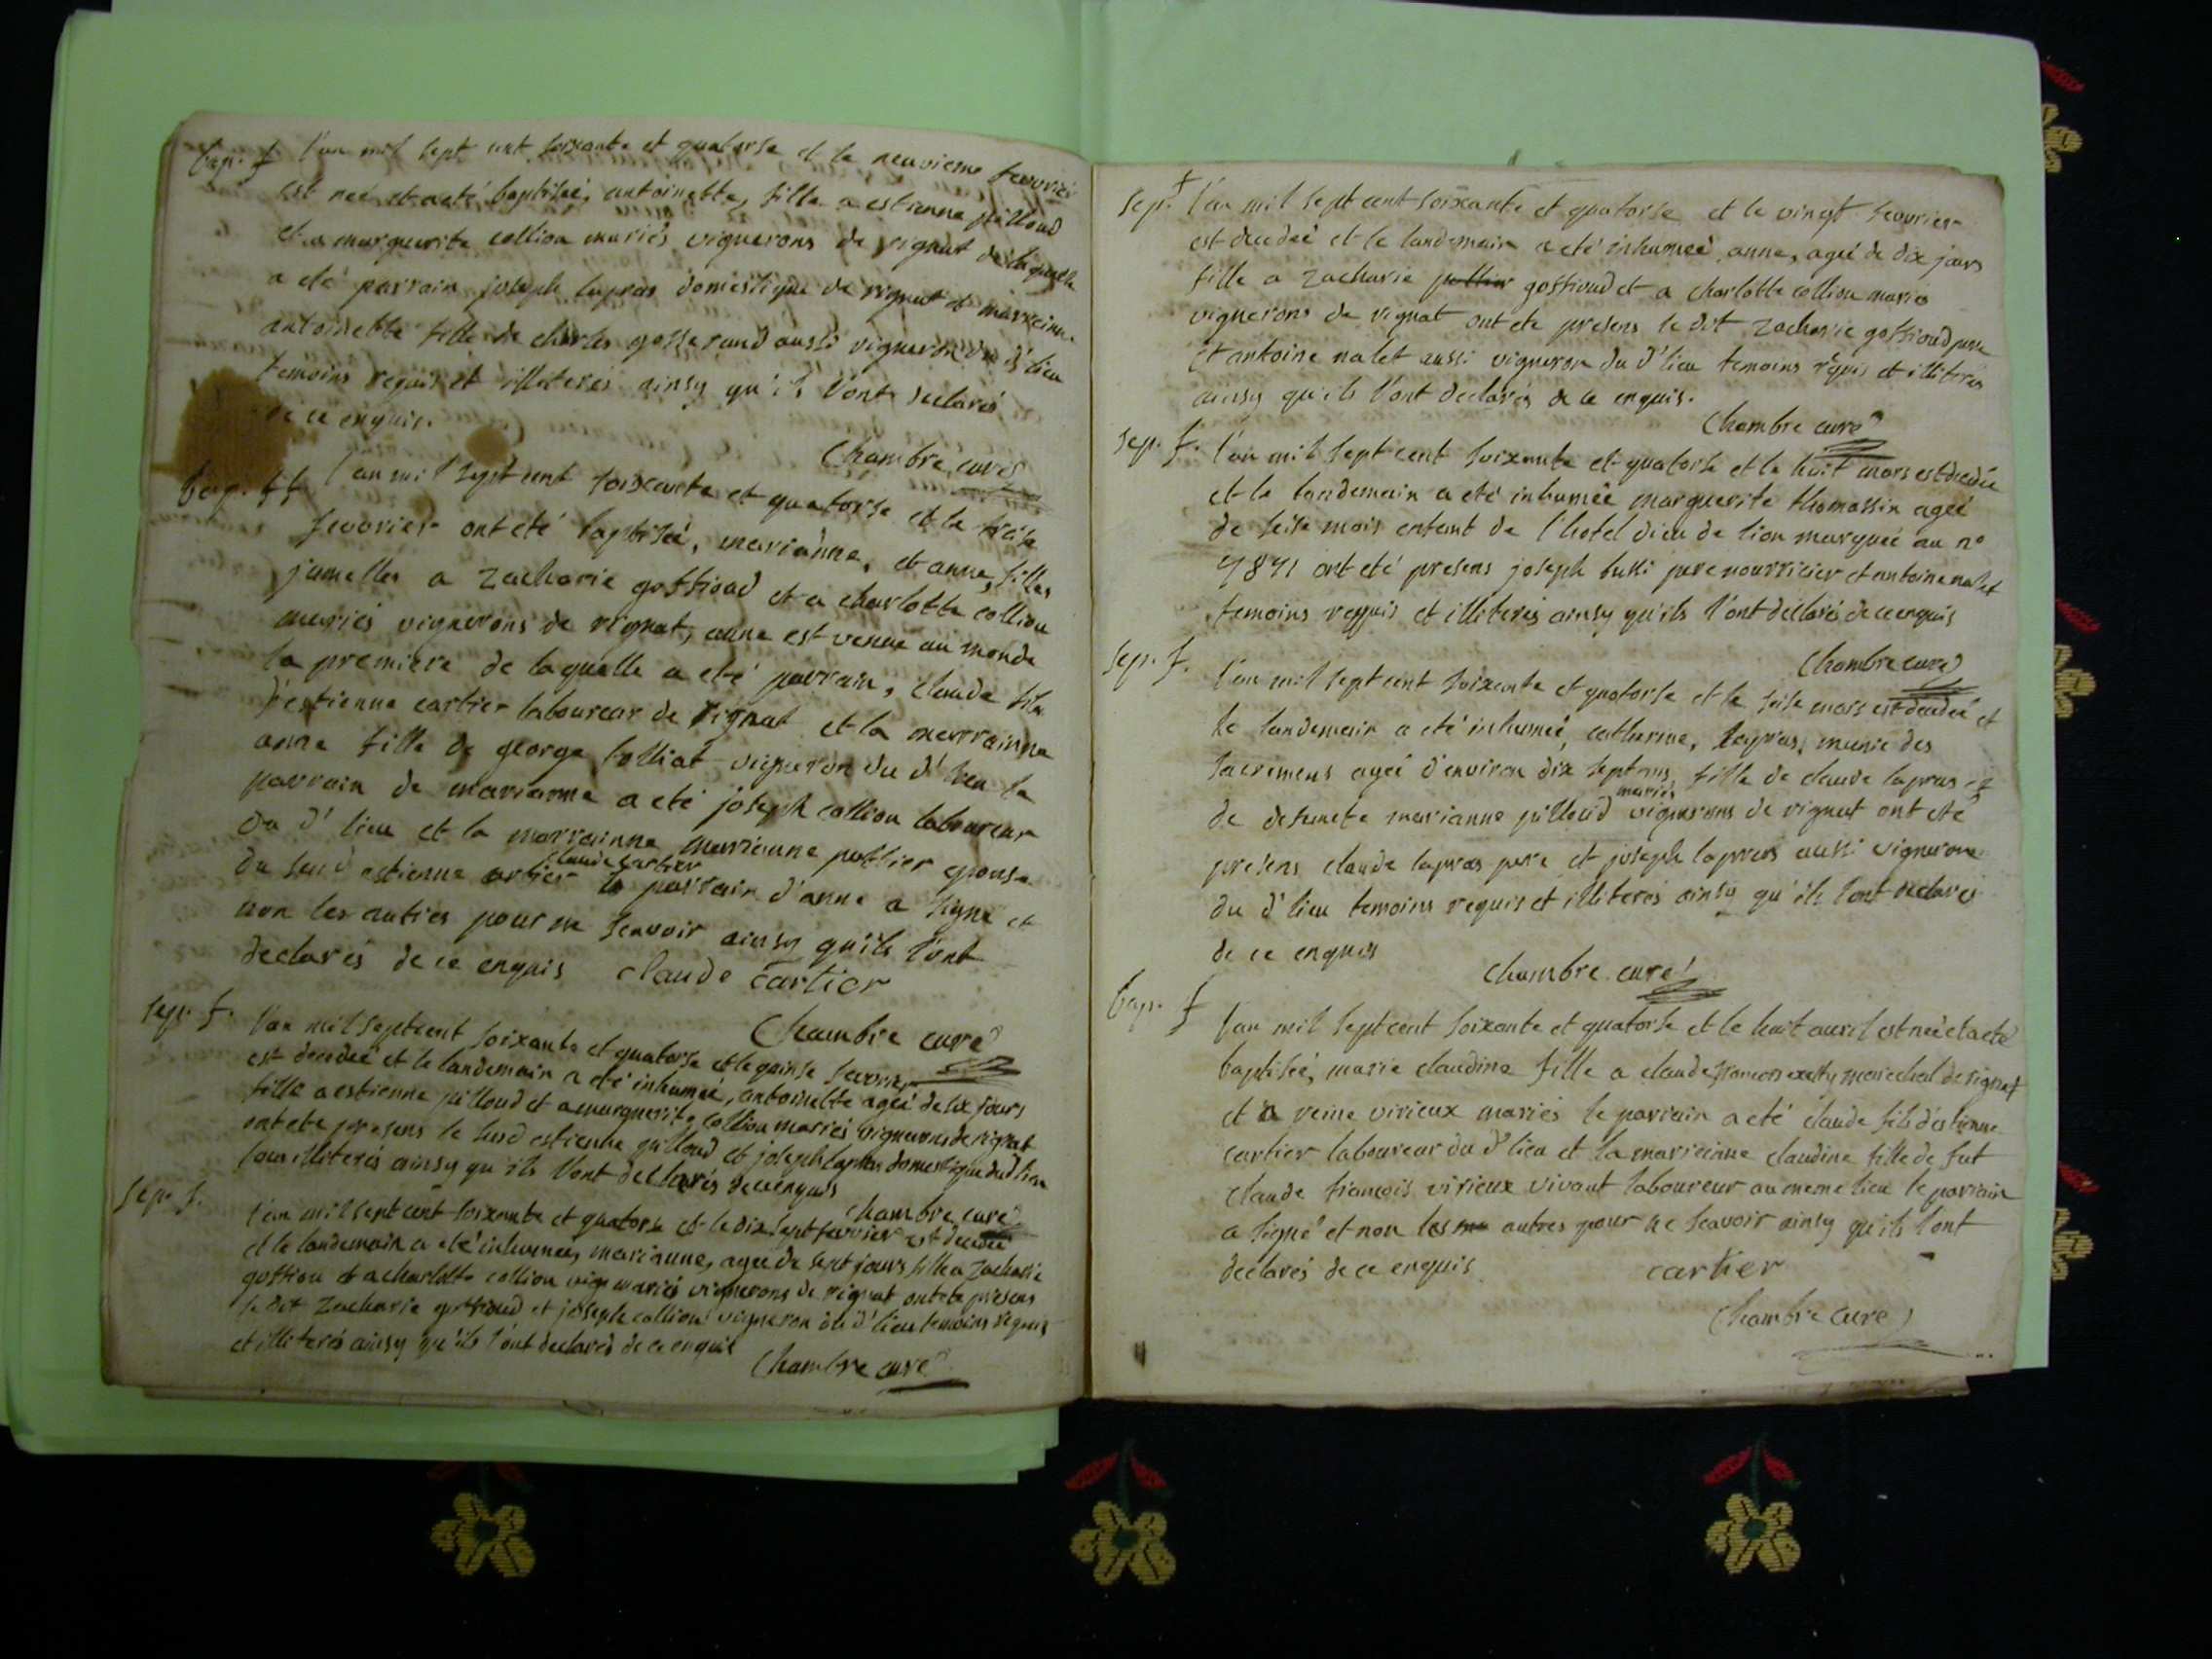 bap. f l'an mil sept cent soixante et quatorse et le neuvieme fevrier
est neé et a eté baptiseé, antoinette, fille a estienne pilloud
et a marguerite collion mariés vignerons de rignat de laquelle
a eté parrain joseph lapras domestique de rignat et marreinne
antoinette fille de charles gosserand aussi vigneron du d' lieu
temoins requis et illiterés ainsy qu'ils l'onts declarés
de ce enquis.
Chambre curé
bap. ff l'an mil sept cent soixante et quatorse et le treise
fevrier ont eté baptiseé, marianne, et anne, filles
jumelles a zacharie gottioud et a charlotte collion
mariés vignerons de rignat, anne est venue au monde
la premiere de laquelle a eté parrain, claude fils
d'estienne cartier laboureur de rignat et la marrainne
anne fille de george colliat vigneron du d' lieu le
parrain de marianne a eté joseph collion laboureur
du d' lieu et la marrainne marianne pottier epouse
claude cartier
du susd estienne cartier le parrain d'anne a signé et
non les autres pour ne scavoir ainsy qu'ils l'ont
declarés de ce enquis claude cartier
Chambre curé
sep. f. l'an mil sept cent soixante et quatorse et le quinse fevrier
est decedeé et le landemain a eté inhumeé, antoinette ageé de six jours
fille a estienne pilloud et a marguerite collion mariés vignerons de rignat
ont eté presens le susd estienne pilloud et joseph lapras domestique dud lieu
tous illiterés ainsy qu'ils l'ont declarés de ce enquis
Chambre curé
sep. f. l'an mil sept cent soixante et quatorse et le dix sept fevrier est decedeé
et le landemain a eté inhumeé, marianne, ageé de sept jours fille a zacharie
gottiou et a charlotte collion vign mariés vignerons de rignat ont eté presens
le dit zacharie gottioud et joseph collion vigneron du d' lieu temoins requis
et illiterés ainsy qu'ils l'ont declarés de ce enquis
Chambre curé
sep. f l'an mil sept cent soixante et quatorse et le vingt fevrier
est decedeé et le landemain a eté inhumeé anne, ageé de dix jours
fille a zacharie gottioud et a charlotte collion mariés
vignerons de rignat ont eté presens le dit zacharie gottioud pere
et antoine nalet aussi vigneron du d' lieu temoins requis et illiterés
ainsy qu'ils l'ont declarés de ce enquis.
Chambre curé
sep. f. l'an mil sept cent soixante et quatorse et le huit mars est decedeé
et le landemain a eté inhumeé marguerite thomassin ageé
de seise mois enfant de l'hotel dieu de lion marqueé au n°
7871 ont eté presens joseph bussi pere nourricier et antoine nalet
temoins requis et illiterés ainsy qu'ils l'ont declarés de ce enquis
Chambre curé
sep. f. l'an mil sept cent soixante et quatorse et le seise mars est decedeé et
le landemain a eté inhumeé, catherine, lapras, munie des
sacremens ageé d'environ dix sept ans fille de claude lapras et
mariés
de defuncte marianne pilloud vignerons de rignat ont eté
presens claude lapras pere et joseph lapras aussi vigneron
du d' lieu temoins requis et illiterés ainsy qu'ils l'ont declarés
de ce enquis
Chambre curé
bap. f l'an mil sept cent soixante et quatorse et le huit avril est neé et a eté
baptiseé, marie claudine fille a claude francois marechal de rignat
et a reine virieux mariés le parrain a eté claude fils d'estienne
cartier laboureur du d' lieu et la marreinne claudine fille de fut
claude francois virieux vivant laboureur au meme lieu le parrain
a signé et non les autres pour ne scavoir ainsy qu'ils l'ont
declarés de ce enquis cartier
Chambre curé